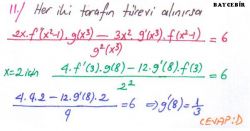 BAYCEBİR
11/ Her iki tarafın türevi alınırsa
2x.f'(x²-1).g(x³) - 3x².g'(x³).f(x²-1) / g²(x³) = 6
x=2 için 4.f'(3).g(8) - 12.g'(8).f(3) / 2² = 6
4.4.2 - 12.g'(8).2 / 4 = 6 ⇒ g'(8) = 1/3
CEVAP: D